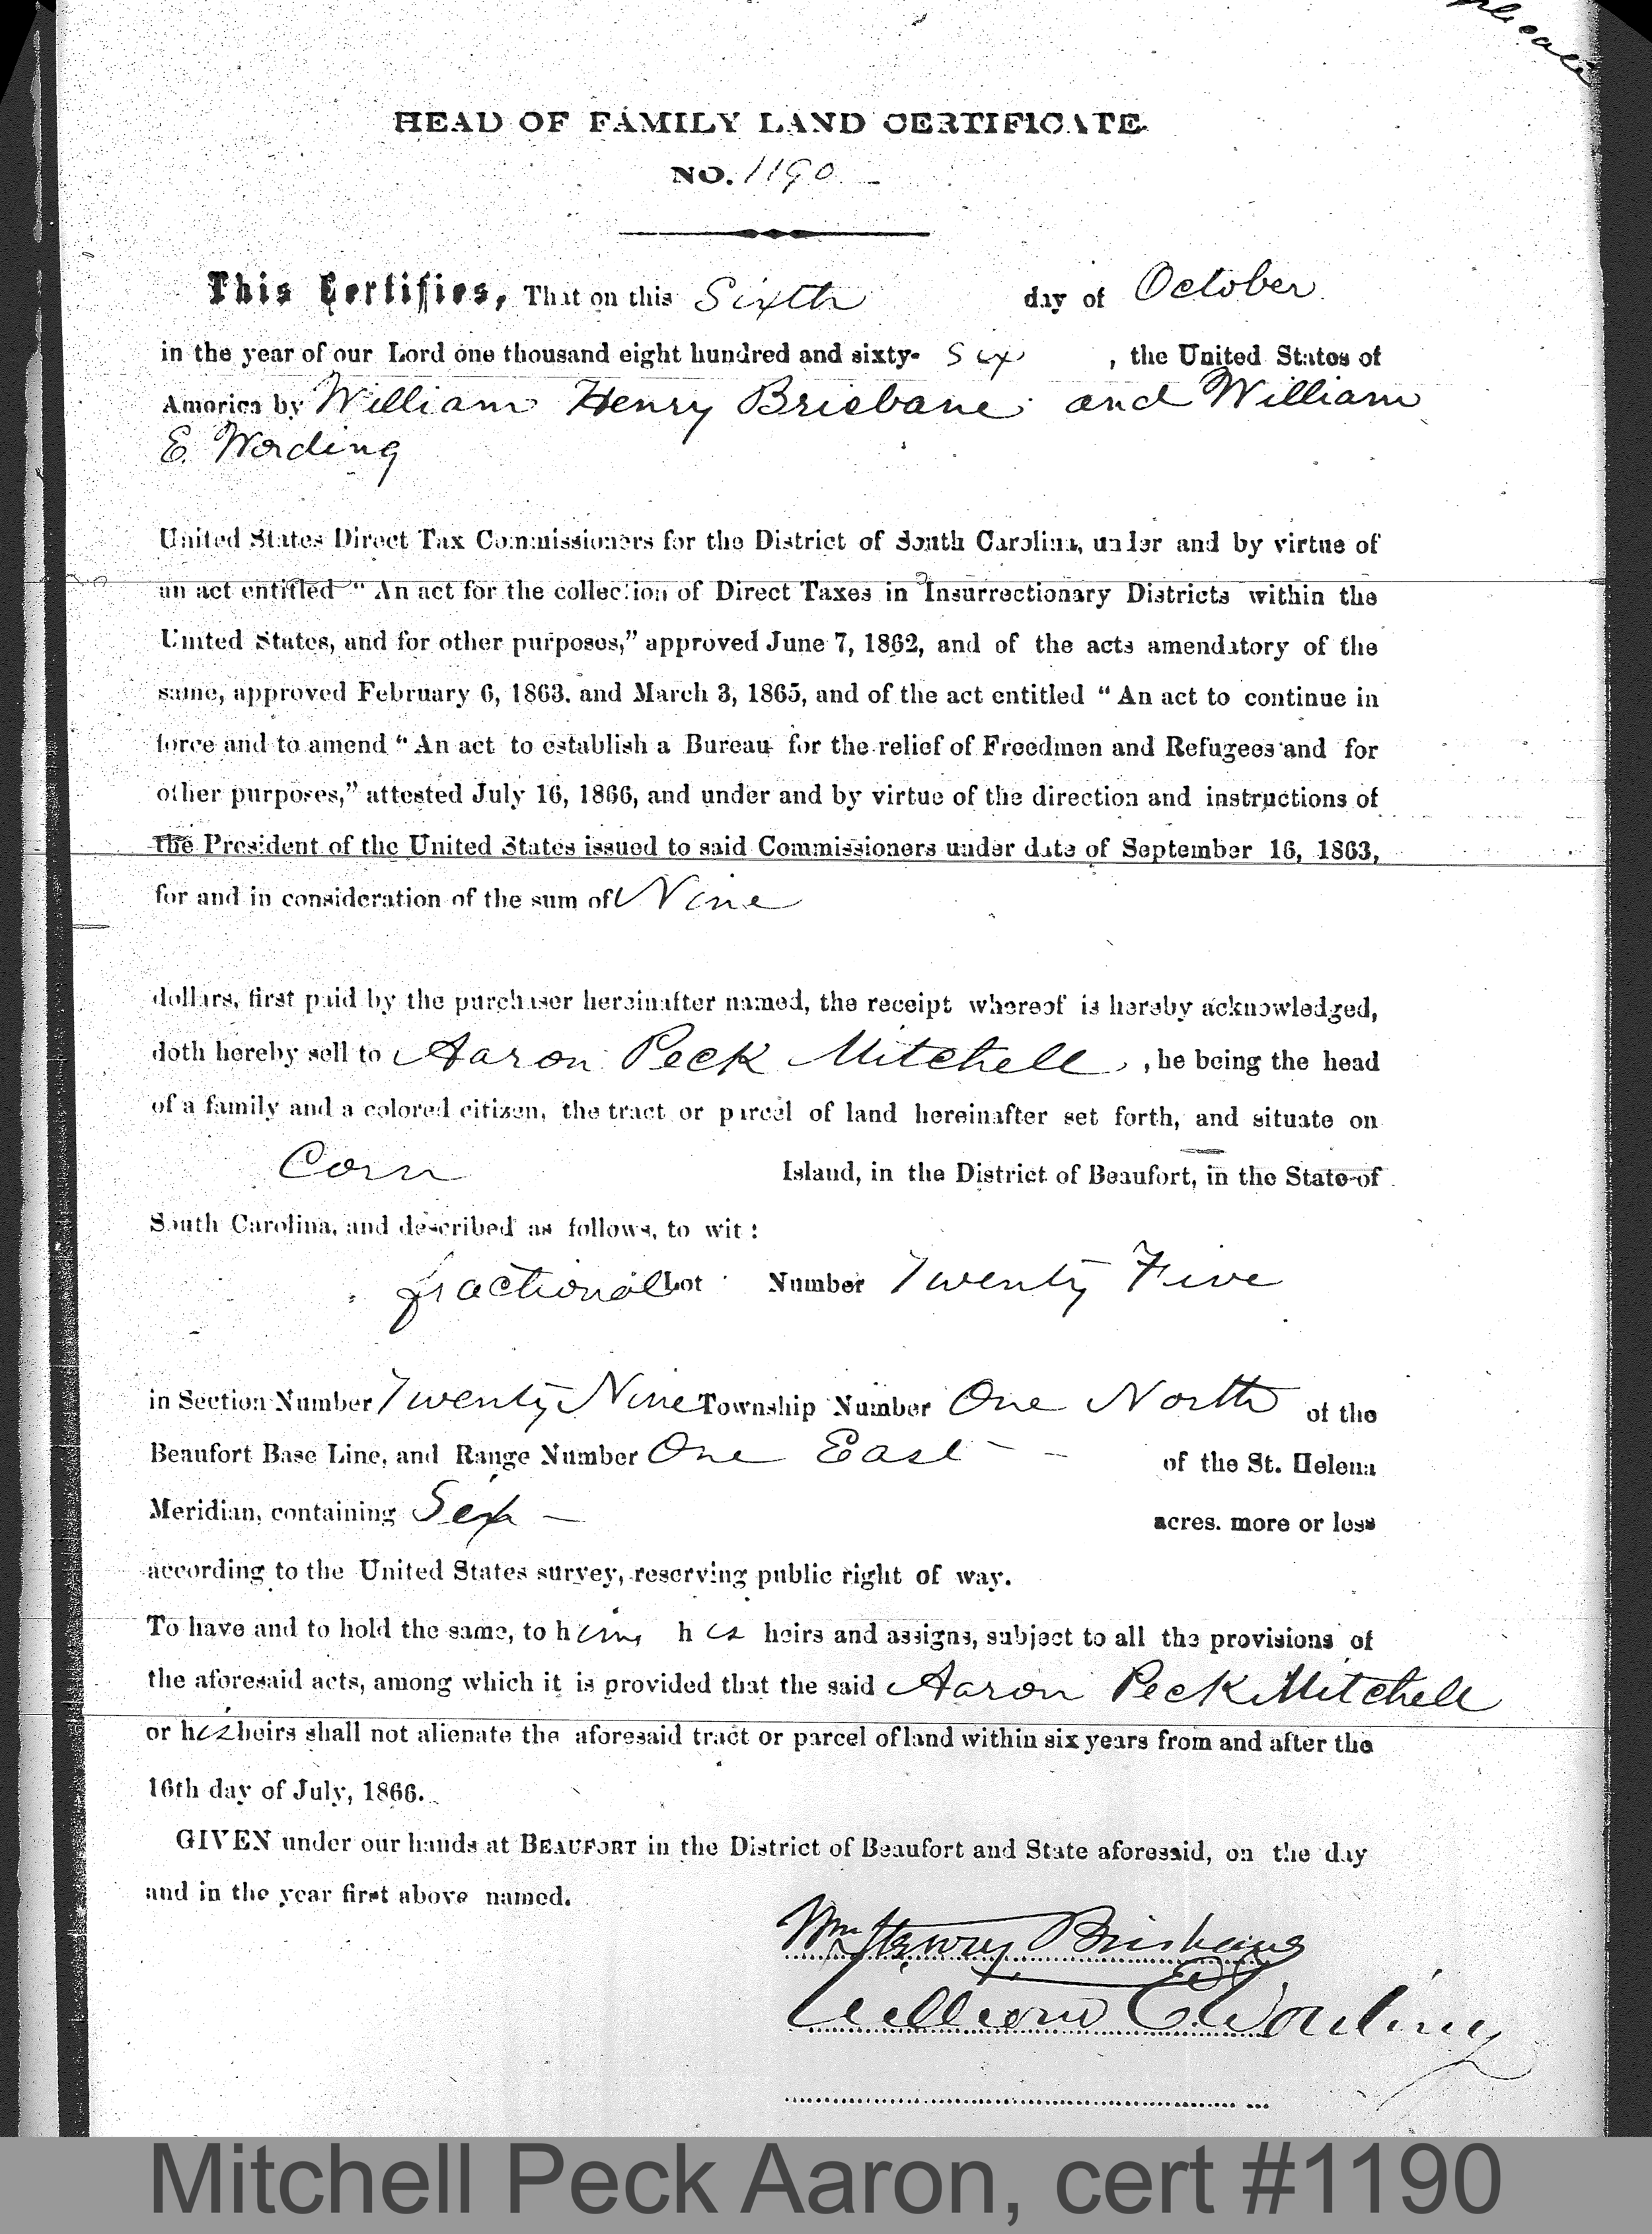 HEAD OF FAMILY LAND CERTIFICATE
NO. 1190
This Certifies, That on this Sixth day of October
in the year of our Lord one thousand eight hundred and sixty- Six , the United States of
America by William Henry Brisbane and William
E. Wording
United States Direct Tax Commissioners for the District of South Carolina, under and by virtue of
an act entitled " An act for the collection of Direct Taxes in Insurrectionary Districts within the
United States, and for other purposes," approved June 7, 1862, and of the acts amendatory of the
same, approved February 6, 1863. and March 3, 1865, and of the act entitled " An act to continue in
force and to amend " An act to establish a Bureau for the relief of Freedmen and Refugees and for
other purposes," attested July 16, 1866, and under and by virtue of the direction and instructions of
the President of the United States issued to said Commissioners under date of September 16, 1863,
for and in consideration of the sum of Nine
dollars, first paid by the purchaser hereinafter named, the receipt whereof is hereby acknowledged,
doth hereby sell to Aaron Peck Mitchell , he being the head
of a family and a colored citizen, the tract or parcel of land hereinafter set forth, and situate on
Corn Island, in the District of Beaufort, in the State of
South Carolina, and described as follows, to wit :
fractional Lot Number Twenty Five
in Section Number Twenty Nine Township Number One North of the
Beaufort Base Line, and Range Number One East - - of the St. Helena
Meridian, containing Six — acres. more or less
according to the United States survey, reserving public right of way.
To have and to hold the same, to him, his heirs and assigns, subject to all the provisions of
the aforesaid acts, among which it is provided that the said Aaron Peck Mitchell
or his heirs shall not alienate the aforesaid tract or parcel of land within six years from and after the
16th day of July, 1866.
GIVEN under our hands at BEAUFORT in the District of Beaufort and State aforesaid, on the day
and in the year first above named.
Wm Henry Brisbane
William E. Wording
Mitchell Peck Aaron, cert #1190